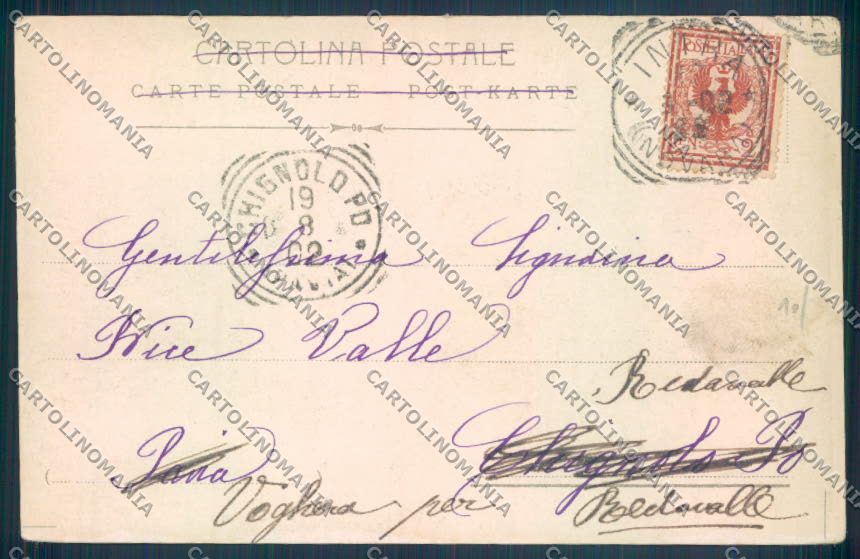 CARTOLINA POSTALE
CARTE POSTALE POST-KARTE
POSTE ITALIANE
CHIGNOLO PO
19
8
02
Gentilissima Signorina
Nice Valle
Redavalle
Pavia Chignolo Po
Voghera per Redavalle
10/
CARTOLINOMANIA